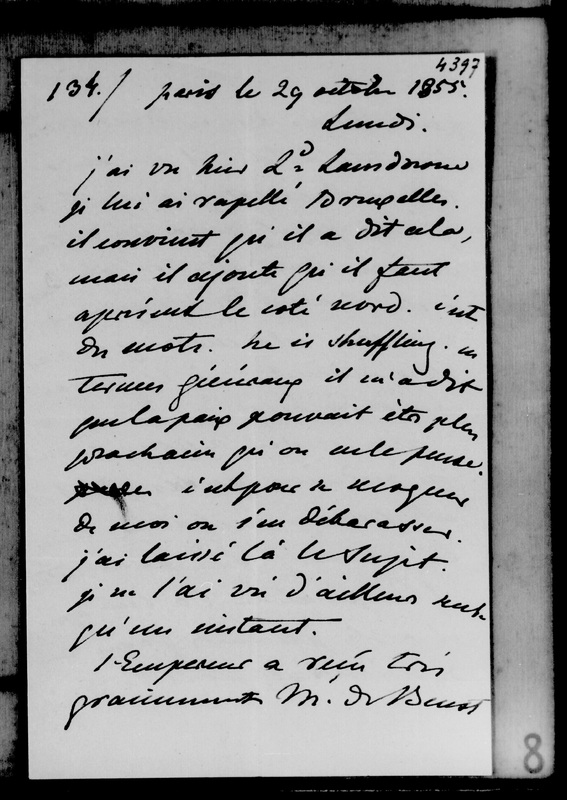 4397
134./ paris le 29 octobre 1855.
Lundi.
j'ai vu hier Ld Lansdowne
je lui ai rapellé Bruxelles.
il convient qu'il a dit cela,
mais il ajoute qu'il faut
apresent le coté nord. c'est
des mots. he is shuffling. en
termes généraux il m'a dit
que la paix pouvait être plus
prochaine qu'on ne le pense.
c'est pour se moquer
de moi ou s'en débarasser.
j'ai laissé là le sujet.
je ne l'ai vu d'ailleurs
qu'un instant.
l'Empereur a reçu très
gracieusement M. de Beust
8